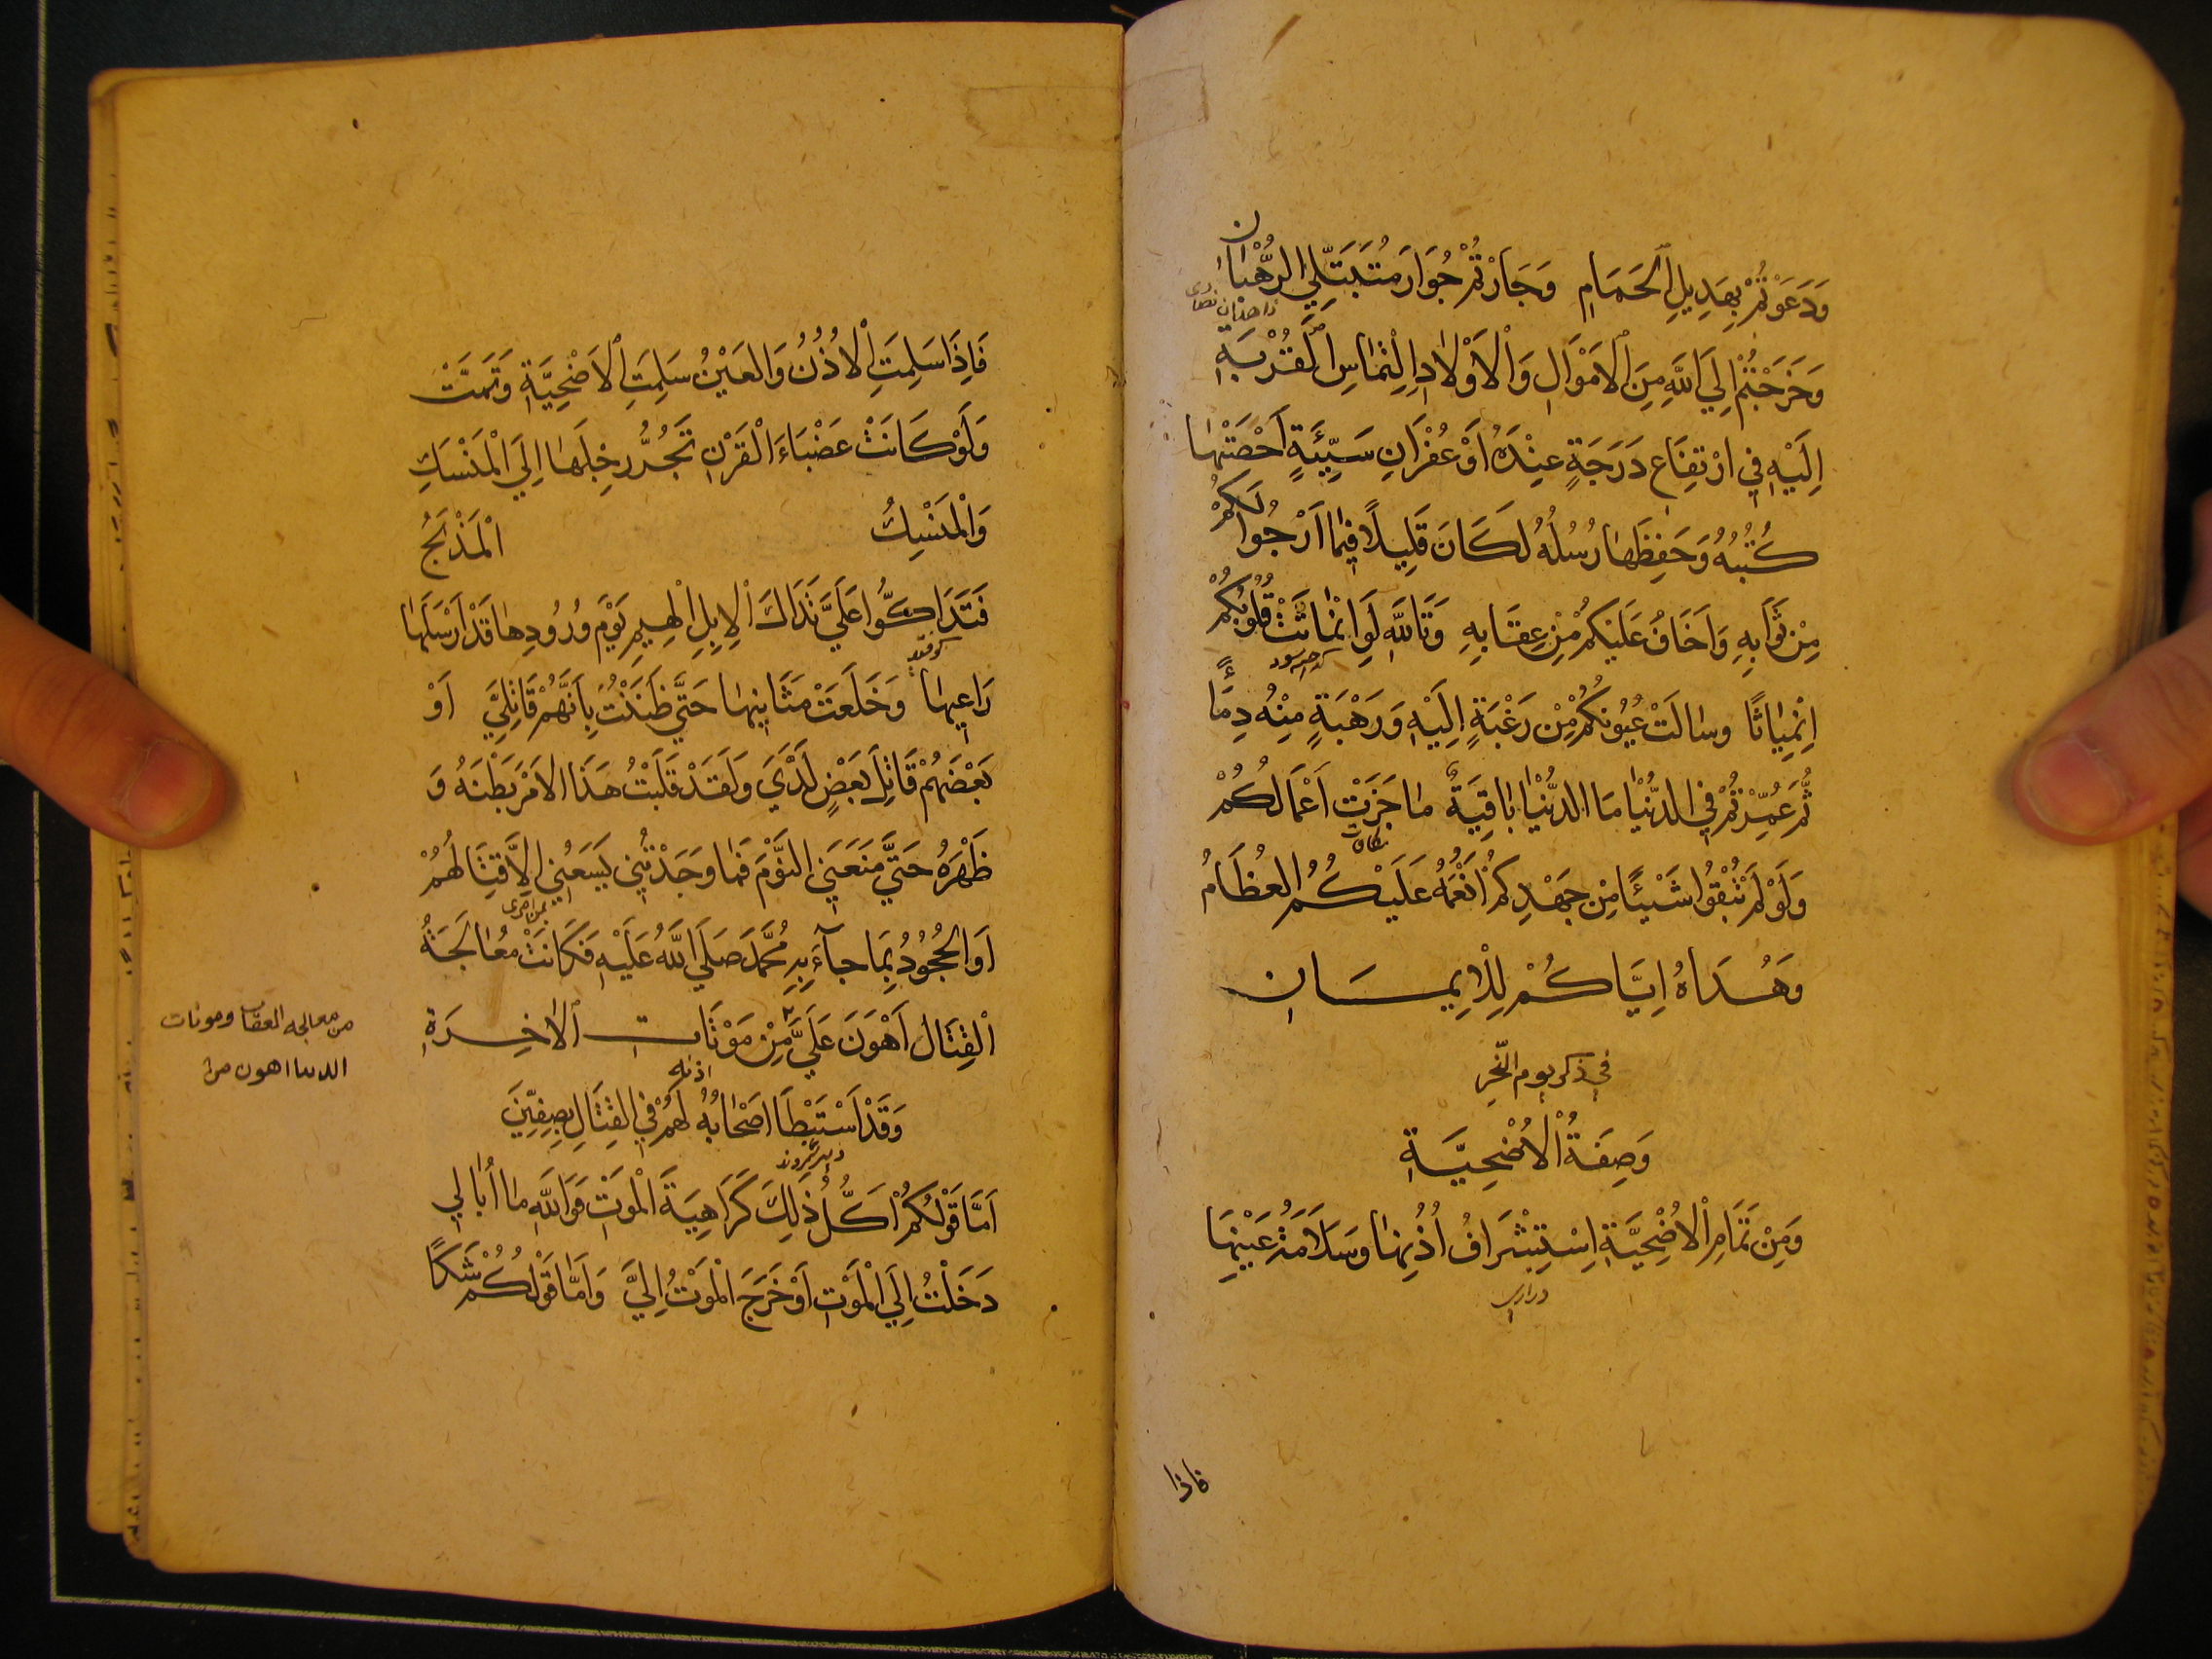 وَدَعَوْتُمْ بِهَدِيلِ الْحَمَامِ وَجَأَرْتُمْ جُؤَارَ مُتَبَتِّلِي الرُّهْبَانِ
زاهدان نصاری
وَخَرَجْتُمْ اِلَي اللَّهِ مِنَ الْاَمْوَالِ وَالْاَوْلَادِ اِلْتِمَاسَ الْقُرْبَةِ
اِلَيْهِ فِي ارْتِفَاعِ دَرَجَةٍ عِنْدَهُ اَوْ غُفْرَانِ سَيِّئَةٍ اَحْصَتْهَا
كُتُبُهُ وَحَفِظَهَا رُسُلُهُ لَكَانَ قَلِيلًا فِيمَا اَرْجُوا لَكُمْ
مِنْ ثَوَابِهِ وَاَخَافُ عَلَيْكُمْ مِنْ عِقَابِهِ وَتَاللَّهِ لَوِ انْمَاثَتْ قُلُوبُكُمْ
اِنْمِيَاثًا وسَالَتْ عُيُونُكُمْ مِنْ رَغْبَةٍ اِلَيْهِ وَرَهْبَةٍ مِنْهُ دِمَاءً
ثُمَّ عُمِّرْتُمْ فِي الدُّنْيَا مَا الدُّنْيَا بَاقِيَةٌ مَا جَزَتْ اَعْمَالُكُمْ
وَلَوْ لَمْ تُبْقُوا شَيْئًا مِنْ جَهْدِكُمْ اَنْعُمَهُ عَلَيْكُمُ الْعُظَامَ
وَهُدَاهُ اِيَّاكُمْ لِلْاِيمَانِ
في ذكر يوم النّحر
وَصِفَةُ الْاُضْحِيَّةِ
وَمِنْ تَمَامِ الْاُضْحِيَّةِ اِسْتِشْرَافُ اُذُنِهَا وسَلَامَةُ عَيْنِهَا
فاذا
فَاِذَا سَلِمَتِ الْاُذُنُ وَالْعَيْنُ سَلِمَتِ الْاُضْحِيَّةِ وَتَمَّتْ
وَلَوْ كَانَتْ عَضْبَاءَ الْقَرْنِ تَجُرُّ رِجْلَهَا اِلَي الْمَنْسِكِ
وَالْمَنْسِكُ الْمَذْبَحُ
فَتَدَاكُّوا عَلَيَّ تَدَاكَّ الْاِبِلِ الْهِيمِ يَوْمَ وُرُودِهَا قَدْ اَرْسَلَهَا
رَاعِيهَا وَخَلَعَتْ مَثَانِيهَا حَتَّي ظَنَنْتُ بِاَنَّهُمْ قَاتِلِيَّ اَوْ
بَعْضَهُمْ قَاتِلَ بَعْضٍ لَدَيَّ وَلَقَدْ قَلَّبْتُ هَذَا الْاَمْرَ بَطْنَهُ وَ
ظَهْرَهُ حَتَّي مَنَعَنِي النَّوْمَ فَمَا وَجَدْتُنِي يَسَعُنِي اِلَّا قِتَالُهُمْ
اَوِ الْجُحُودُ بِمَا جَاءَ بِهِ مُحَمَّدٌ صَلَي اللَّهُ عَلَيْهِ فَكَانَتْ مُعَالَجَةُ
الْقِتَالِ اَهْوَنَ عَلَيَّ مِنْ مَوْتَاتِ الْاٰخِرَةِ
من معالجه العقاب وموتات
الدنيا اهون من
وَقَدْ اسْتَبْطَأَ اَصْحَابُهُ اذنه لَهُمْ فِي الْقِتَالِ بِصِفِّينَ
اَمَّا قَوْلُكُمْ اَكُلُّ ذَلِكَ كَرَاهِيَةَ الْمَوْتِ فَوَاللَّهِ مَا اُبَالِي
دَخَلْتُ اِلَي الْمَوْتِ اَوْ خَرَجَ الْمَوْتُ اِلَيَّ وَاَمَّا قَوْلُكُمْ شَكًّا